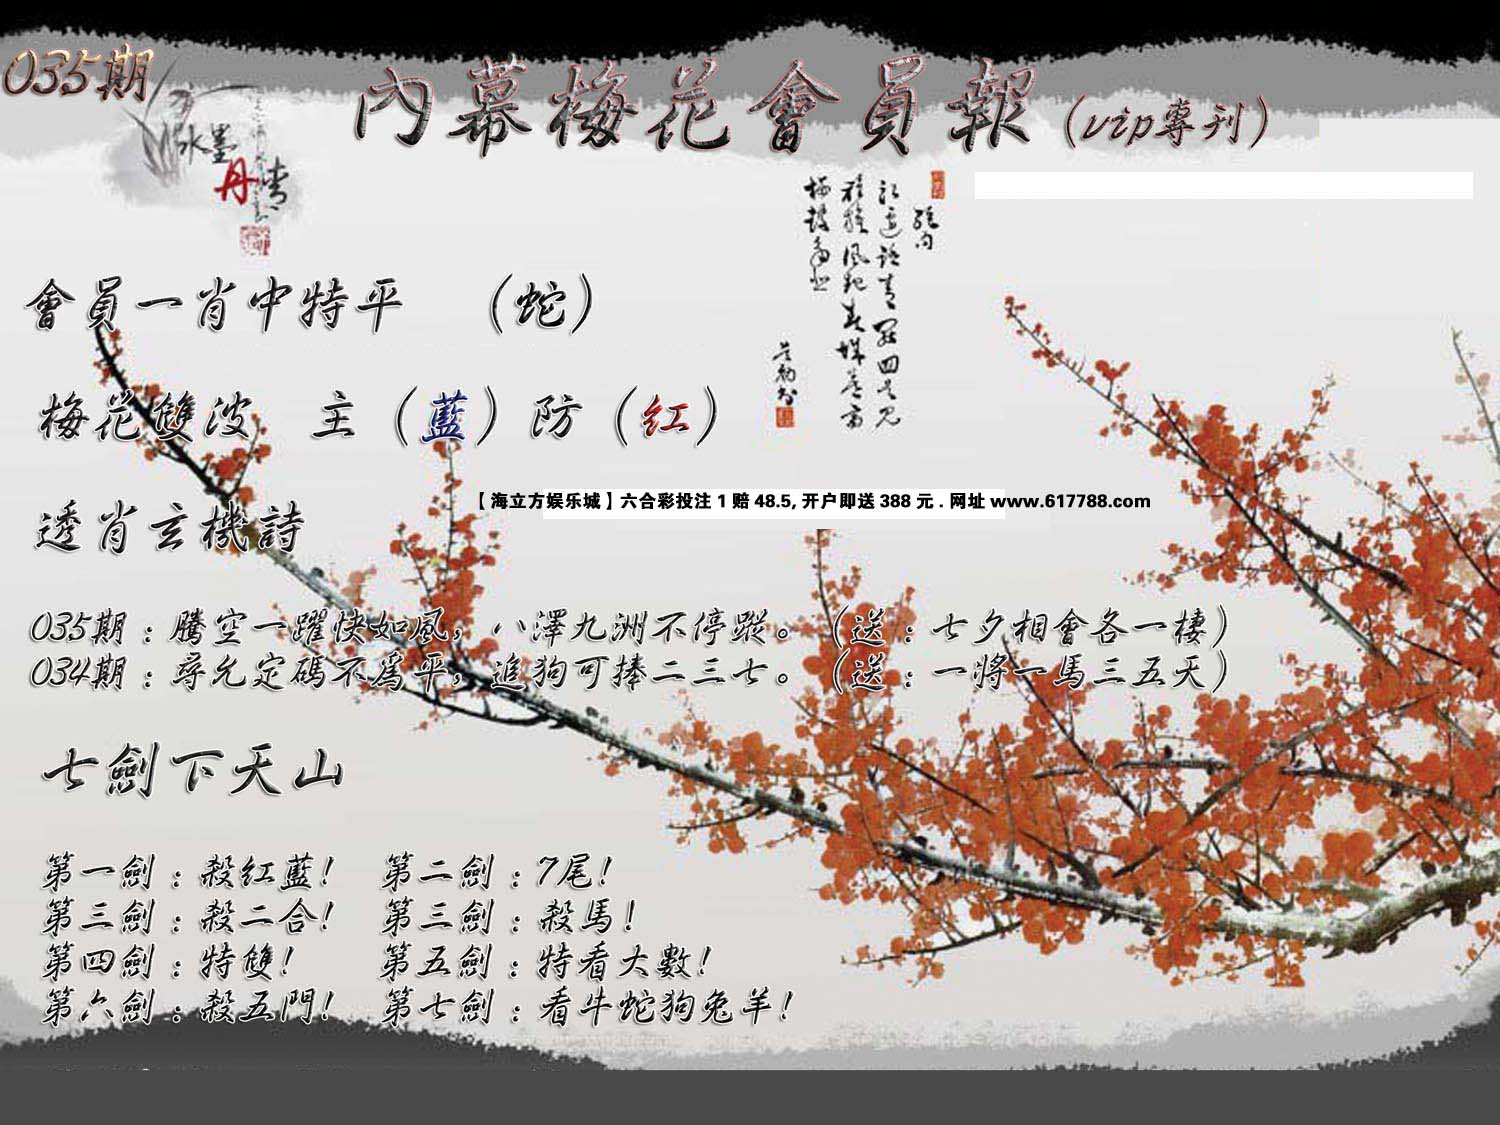 035期
內幕梅花會員報(vip專刊)
水墨
丹青
會員一肖中特平 (蛇)
梅花雙波 主(藍)防(红)
【海立方娱乐城】六合彩投注1赔48.5,开户即送388元.网址www.617788.com
透肖玄機詩
035期:騰空一躍快如風,八澤九洲不停蹤。(送:七夕相會各一棲)
034期:尋允定碼不爲平,追狗可捧二三七。(送:一將一馬三五天)
七劍下天山
第一劍:殺红藍! 第二劍:7尾!
第三劍:殺二合! 第三劍:殺馬!
第四劍:特雙! 第五劍:特看大數!
第六劍:殺五門! 第七劍:看牛蛇狗兔羊!